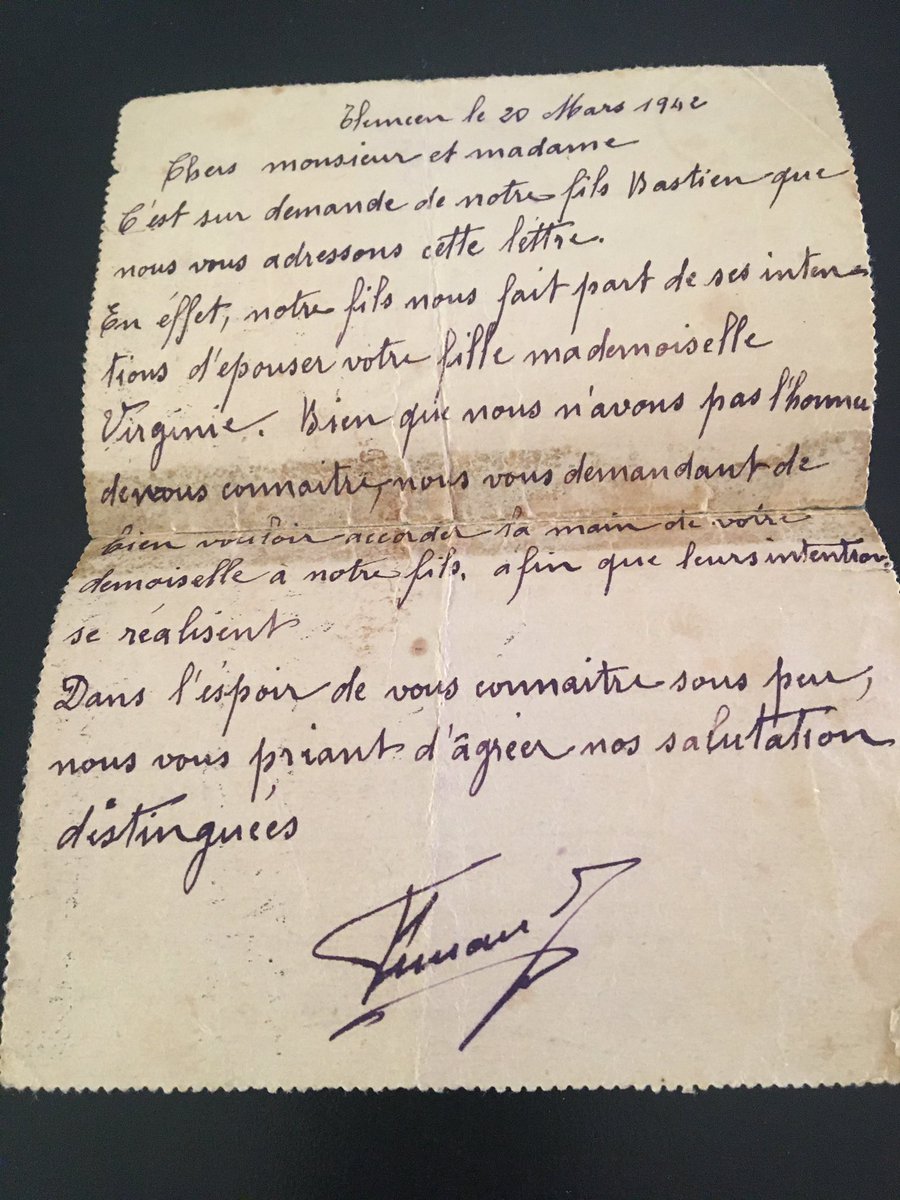 Tlemcen le 20 Mars 1942
Chers monsieur et madame
C'est sur demande de notre fils Bastien que
nous vous adressons cette léttre.
En éffet, notre fils nous fait part de ses inten-
tions d'épouser votre fille mademoiselle
Virginie. Bien que nous n'avons pas l'honneu
de vous connaitre, nous vous demandant de
bien vouloir accorder la main de votre
demoiselle a notre fils. afin que leurs intention
se réalisent
Dans l'éspoir de vous connaitre sous peu,
nous vous priant d'âgréer nos salutation
distinguéés